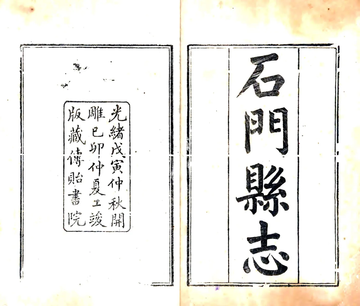 石門縣志
光緒戊寅仲秋開
雕己卯仲夏工竣
版藏傳貽書院